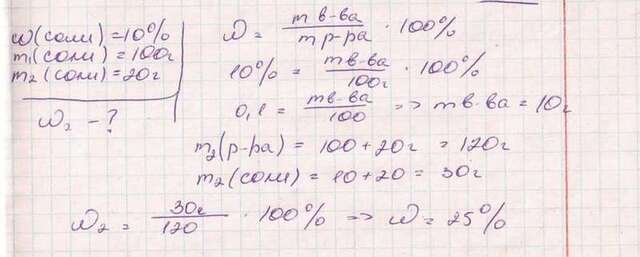 w(соли) = 10%
m₁(соли) = 100г
m₂(соли) = 20г
w₂ - ?
w = m в-ва / m р-ра · 100%
10% = m в-ва / 100г · 100%
0,1 = m в-ва / 100 => m в-ва = 10г
m₂(р-ра) = 100 + 20г = 120г
m₂(соли) = 10 + 20 = 30г
w₂ = 30г / 120 · 100% => w = 25%